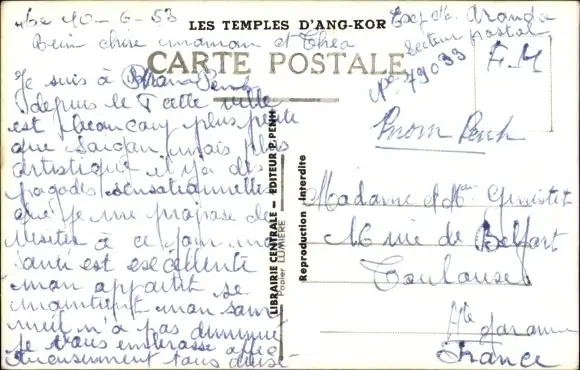 le 10-6-53
LES TEMPLES D'ANG-KOR
Bien chère maman et Théo
CARTE POSTALE
Je suis à Phnom Penh
depuis le 7 cette ville
est beaucoup plus petite
que Saigon mais plus
artistique il y a des
pagodes sensationnelles
que je me propose de
visiter à ce jour ma
santé est excellente
mon appétit se
maintient mon som
meil n'a pas diminué
je vous embrasse affec
tueusement tous deux
LIBRAIRIE CENTRALE — EDITEUR P. PENH
Papier LUMIERE
Reproduction Interdite
Exp Aranda
Secteur postal
N° 79033
F.M
Pnom Penh
Madame et Mr
16 rue de Belfort
Toulouse
Hte Garonne
France